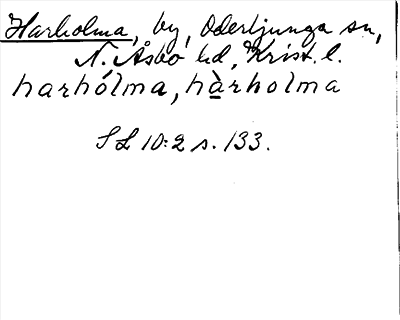 Harholma, by, Oderljunga sn,
N. Åsbo hd, Krist. l.
harhólma, hàrholma
SL 10:2 s. 133.